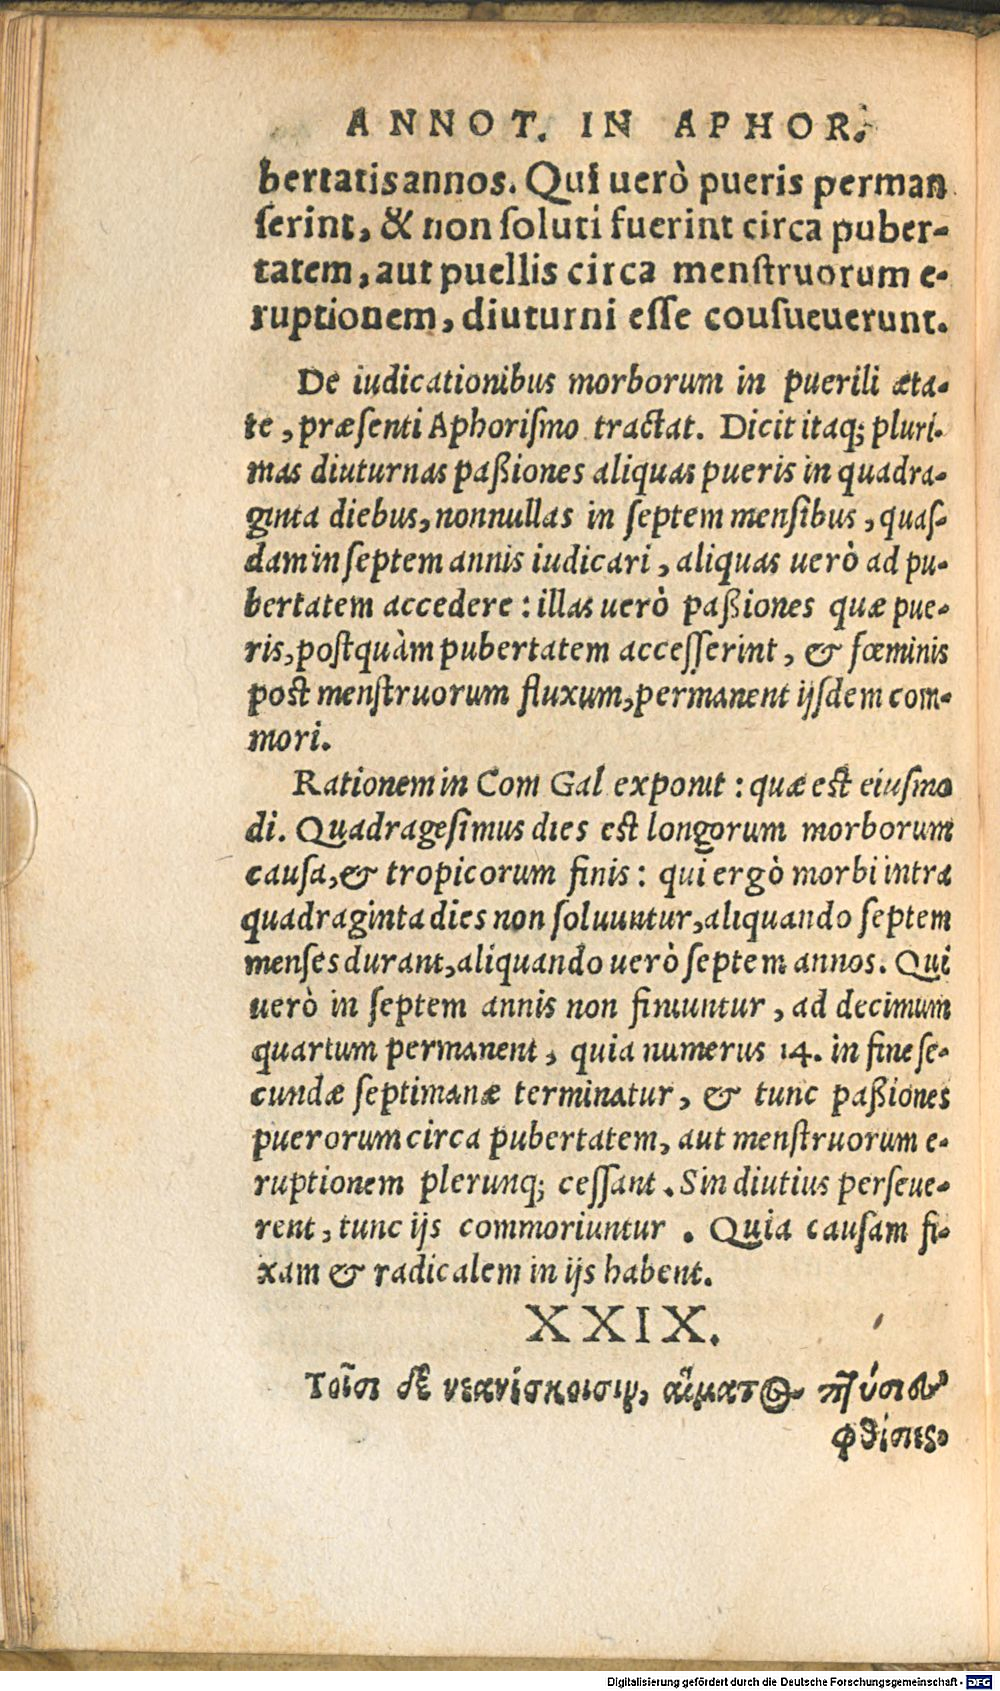 ANNOT. IN APHOR.
bertatis annos. Qui uerò pueris perman
ſerint, & non ſoluti fuerint circa puber-
tatem, aut puellis circa menſtruorum e-
ruptionem, diuturni eſſe couſueuerunt.
De iudicationibus morborum in puerili æta-
te, præſenti Aphoriſmo tractat. Dicit itaq; pluri-
mas diuturnas paßiones aliquas pueris in quadra-
ginta diebus, nonnullas in ſeptem menſibus, quaſ-
dam in ſeptem annis iudicari, aliquas uerò ad pu-
bertatem accedere: illas uerò paßiones quæ pue-
ris, poſtquàm pubertatem acceſſerint, & fœminis
poſt menſtruorum fluxum, permanent ijſdem com-
mori.
Rationem in Com Gal exponit: quæ eſt eiuſmo
di. Quadrageſimus dies eſt longorum morborum
cauſa, & tropicorum finis: qui ergò morbi intra
quadraginta dies non ſoluuntur, aliquando ſeptem
menſes durant, aliquando uerò ſeptem annos. Qui
uerò in ſeptem annis non finiuntur, ad decimum
quartum permanent, quia numerus 14. in fine ſe-
cundæ ſeptimanæ terminatur, & tunc paßiones
puerorum circa pubertatem, aut menſtruorum e-
ruptionem plerunq; ceſſant. Sin diutius perſeue-
rent, tunc ijs commoriuntur. Quia cauſam fi-
xam & radicalem in ijs habent.
XXIX.
Τοῖσι δὲ νεανίσκοισιν, αἵματος πτύσιες
φθίσιες.
Digitalisierung gefördert durch die Deutsche Forschungsgemeinschaft - DFG